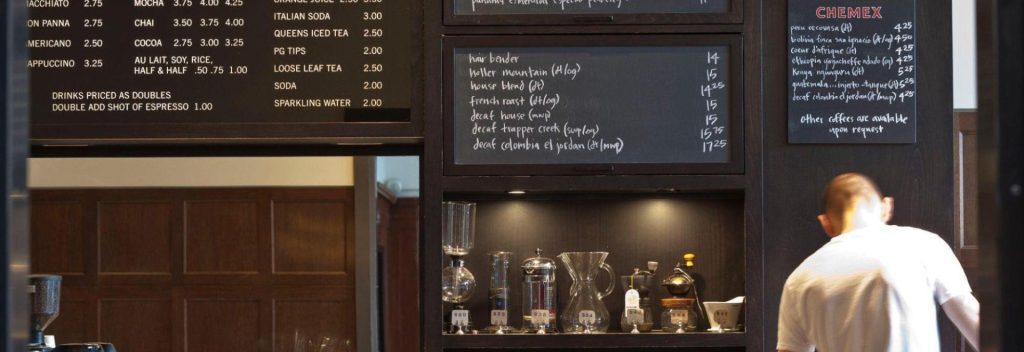 MACCHIATO 2.75
CON PANNA 2.75
AMERICANO 2.50
CAPPUCCINO 3.25
MOCHA 3.25 3.75
CHAI 3.50 3.75 4.00
COCOA 2.75 3.00 3.25
AU LAIT, SOY, RICE,
HALF & HALF .50 .75 1.00
DRINKS PRICED AS DOUBLES
DOUBLE ADD SHOT OF ESPRESSO 1.00
ITALIAN SODA 2.50
QUEENS ICED TEA 2.50
PG TIPS 2.00
LOOSE LEAF TEA 2.50
SODA 2.00
SPARKLING WATER 2.00
hair bender 14
holler mountain (dt/og) 15
house blend (dt) 14 25
french roast (dt/og) 15
decaf house (mwp) 15
decaf trapper creek (swp/og) 15 75
decaf colombia el jordan (dt/mwp) 17 25
CHEMEX
4 25
bolivia finca san ignacio (dt/og) 4 50
coeur d'afrique (dt) 4 25
4 25
5 25
4 25
decaf colombia el jordan (dt/mwp) 4 25
other coffees are available
upon request